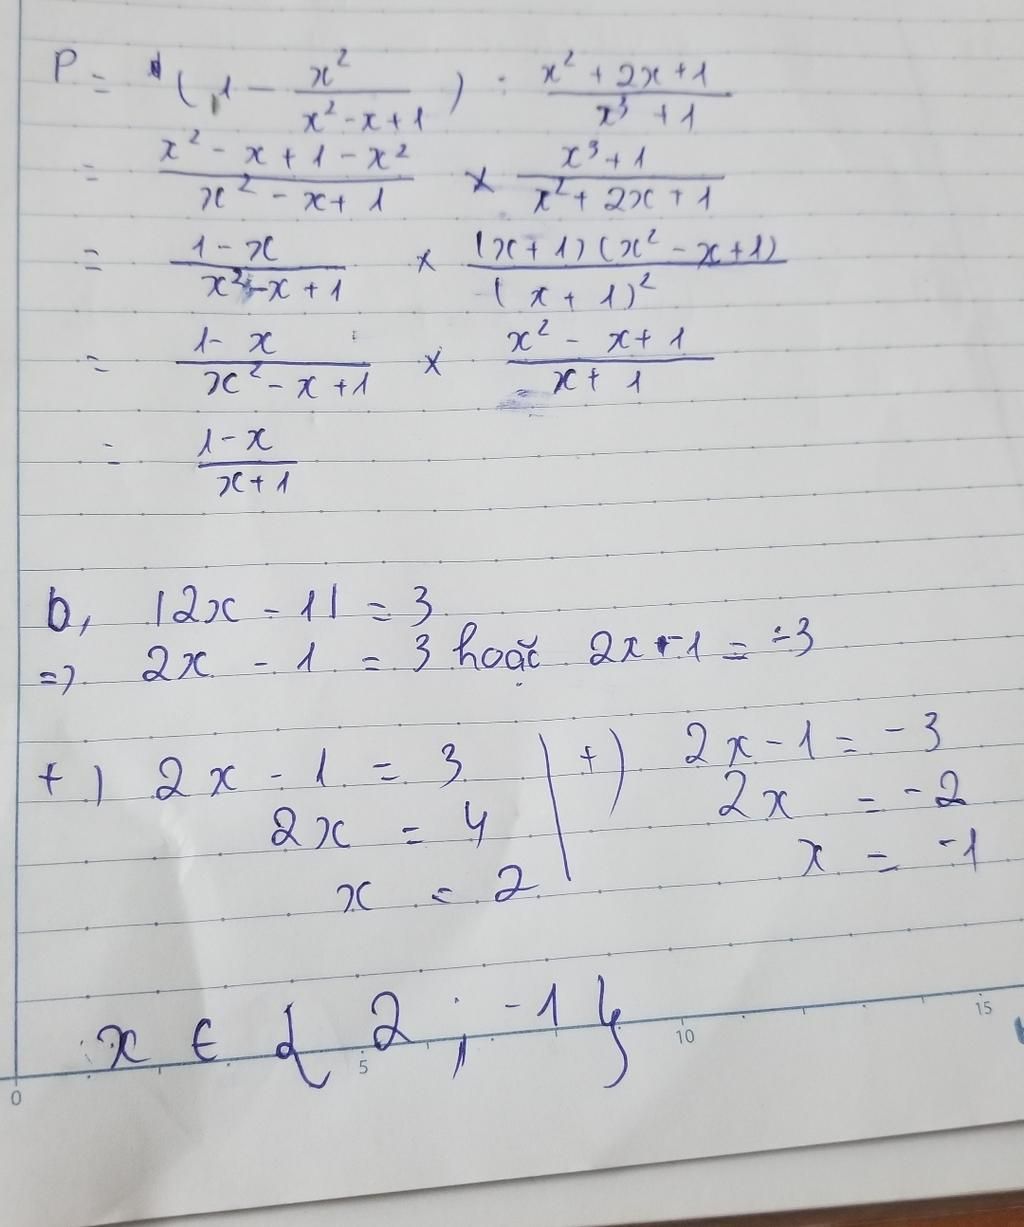 P = (1 - x²/(x² - x + 1)) : (x² + 2x + 1)/(x³ + 1)
= (x² - x + 1 - x²)/(x² - x + 1) × (x³ + 1)/(x² + 2x + 1)
= (1 - x)/(x² - x + 1) × ((x + 1)(x² - x + 1))/((x + 1)²)
= (1 - x)/(x² - x + 1) × (x² - x + 1)/(x + 1)
= (1 - x)/(x + 1)
b, |2x - 1| = 3
=> 2x - 1 = 3 hoặc 2x - 1 = -3
+) 2x - 1 = 3 | +) 2x - 1 = -3
2x = 4 | 2x = -2
x = 2 | x = -1
x ∈ { 2 ; -1 }
0 5 10 15